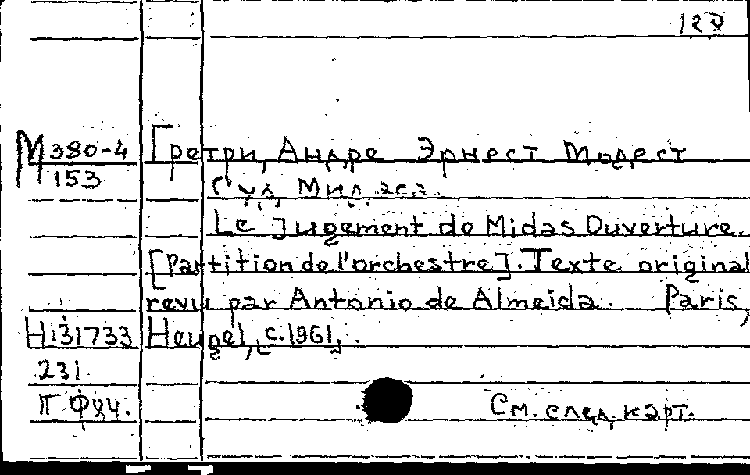 127
М380-4 Гретри, Андре Эрнест Модест
153 Суд Мидаса.
Le Jugement de Midas Ouverture.
[Partition de l'orchestre]. Texte original
revu par Antonio de Almeida. Paris,
Н131733 Heugel, с.1961.
231.
П Ф84.
См. след. карт.